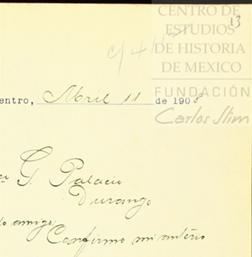 CENTRO DE
ESTUDIOS
DE HISTORIA
DE MEXICO
FUNDACIÓN
Carlos Slim
13
entro, Abril 11 de 190
G. Palacio
Durango
amigo
Confirmo mi